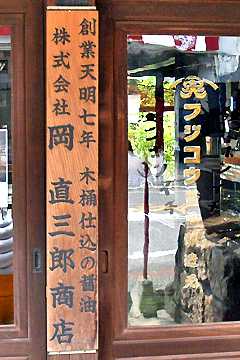 創業天明七年 木桶仕込の醤油
株式会社 岡直三郎商店
フジコウ